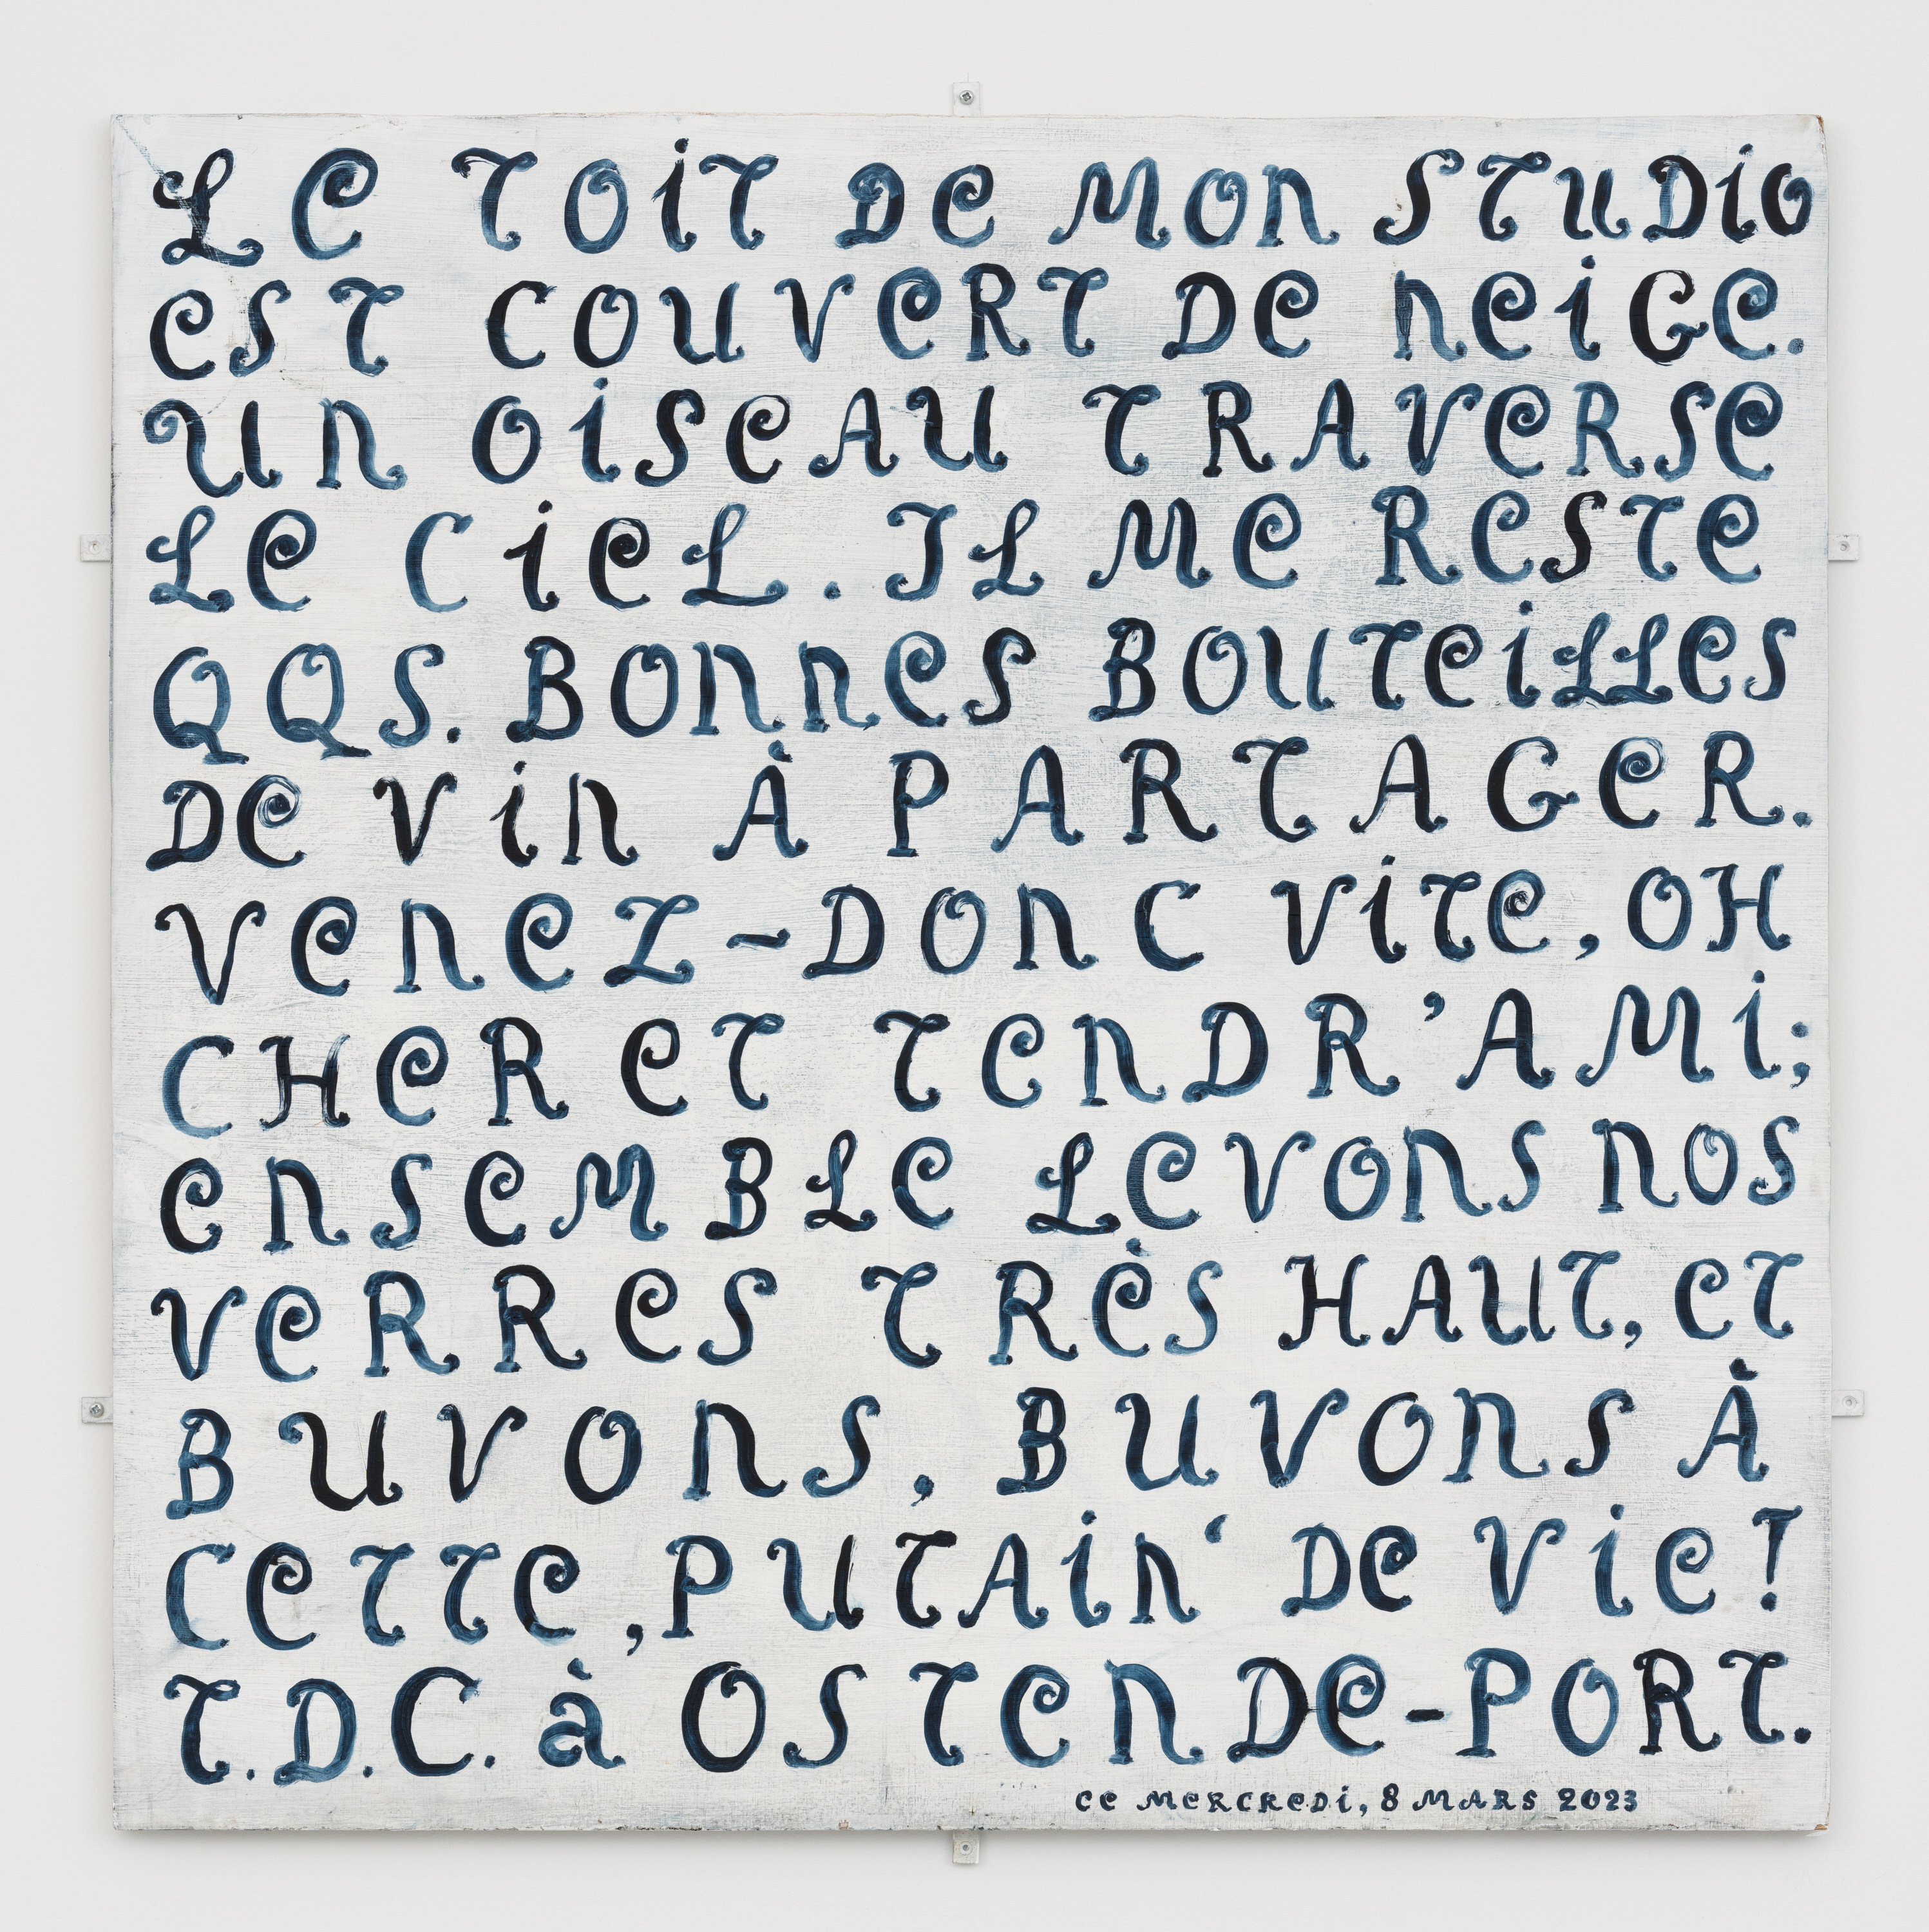 LE TOiT DE MON STUDiO
EST COUVERT DE NEiGE.
UN OiSEAU TRAVERSE
LE CiEL. IL ME RESTE
QQS. BONNES BOUTEiLLES
DE ViN À PARTAGER.
VENEZ-DONC ViTE, OH
CHER ET TENDR'AMi;
ENSEMBLE LEVONS NOS
VERRES TRÈS HAUT, ET
BUVONS, BUVONS À
CETTE ,PUTAiN‘ DE ViE!
T.D.C. à OSTENDE-PORT.
CE MERCREDi, 8 MARS 2023